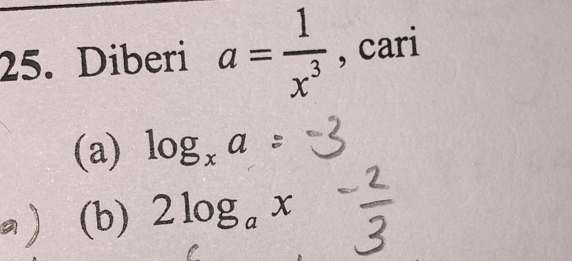 25. Diberi a = 1/x³, cari
(a) logₓ a = -3
(b) 2 logₐ x -2/3